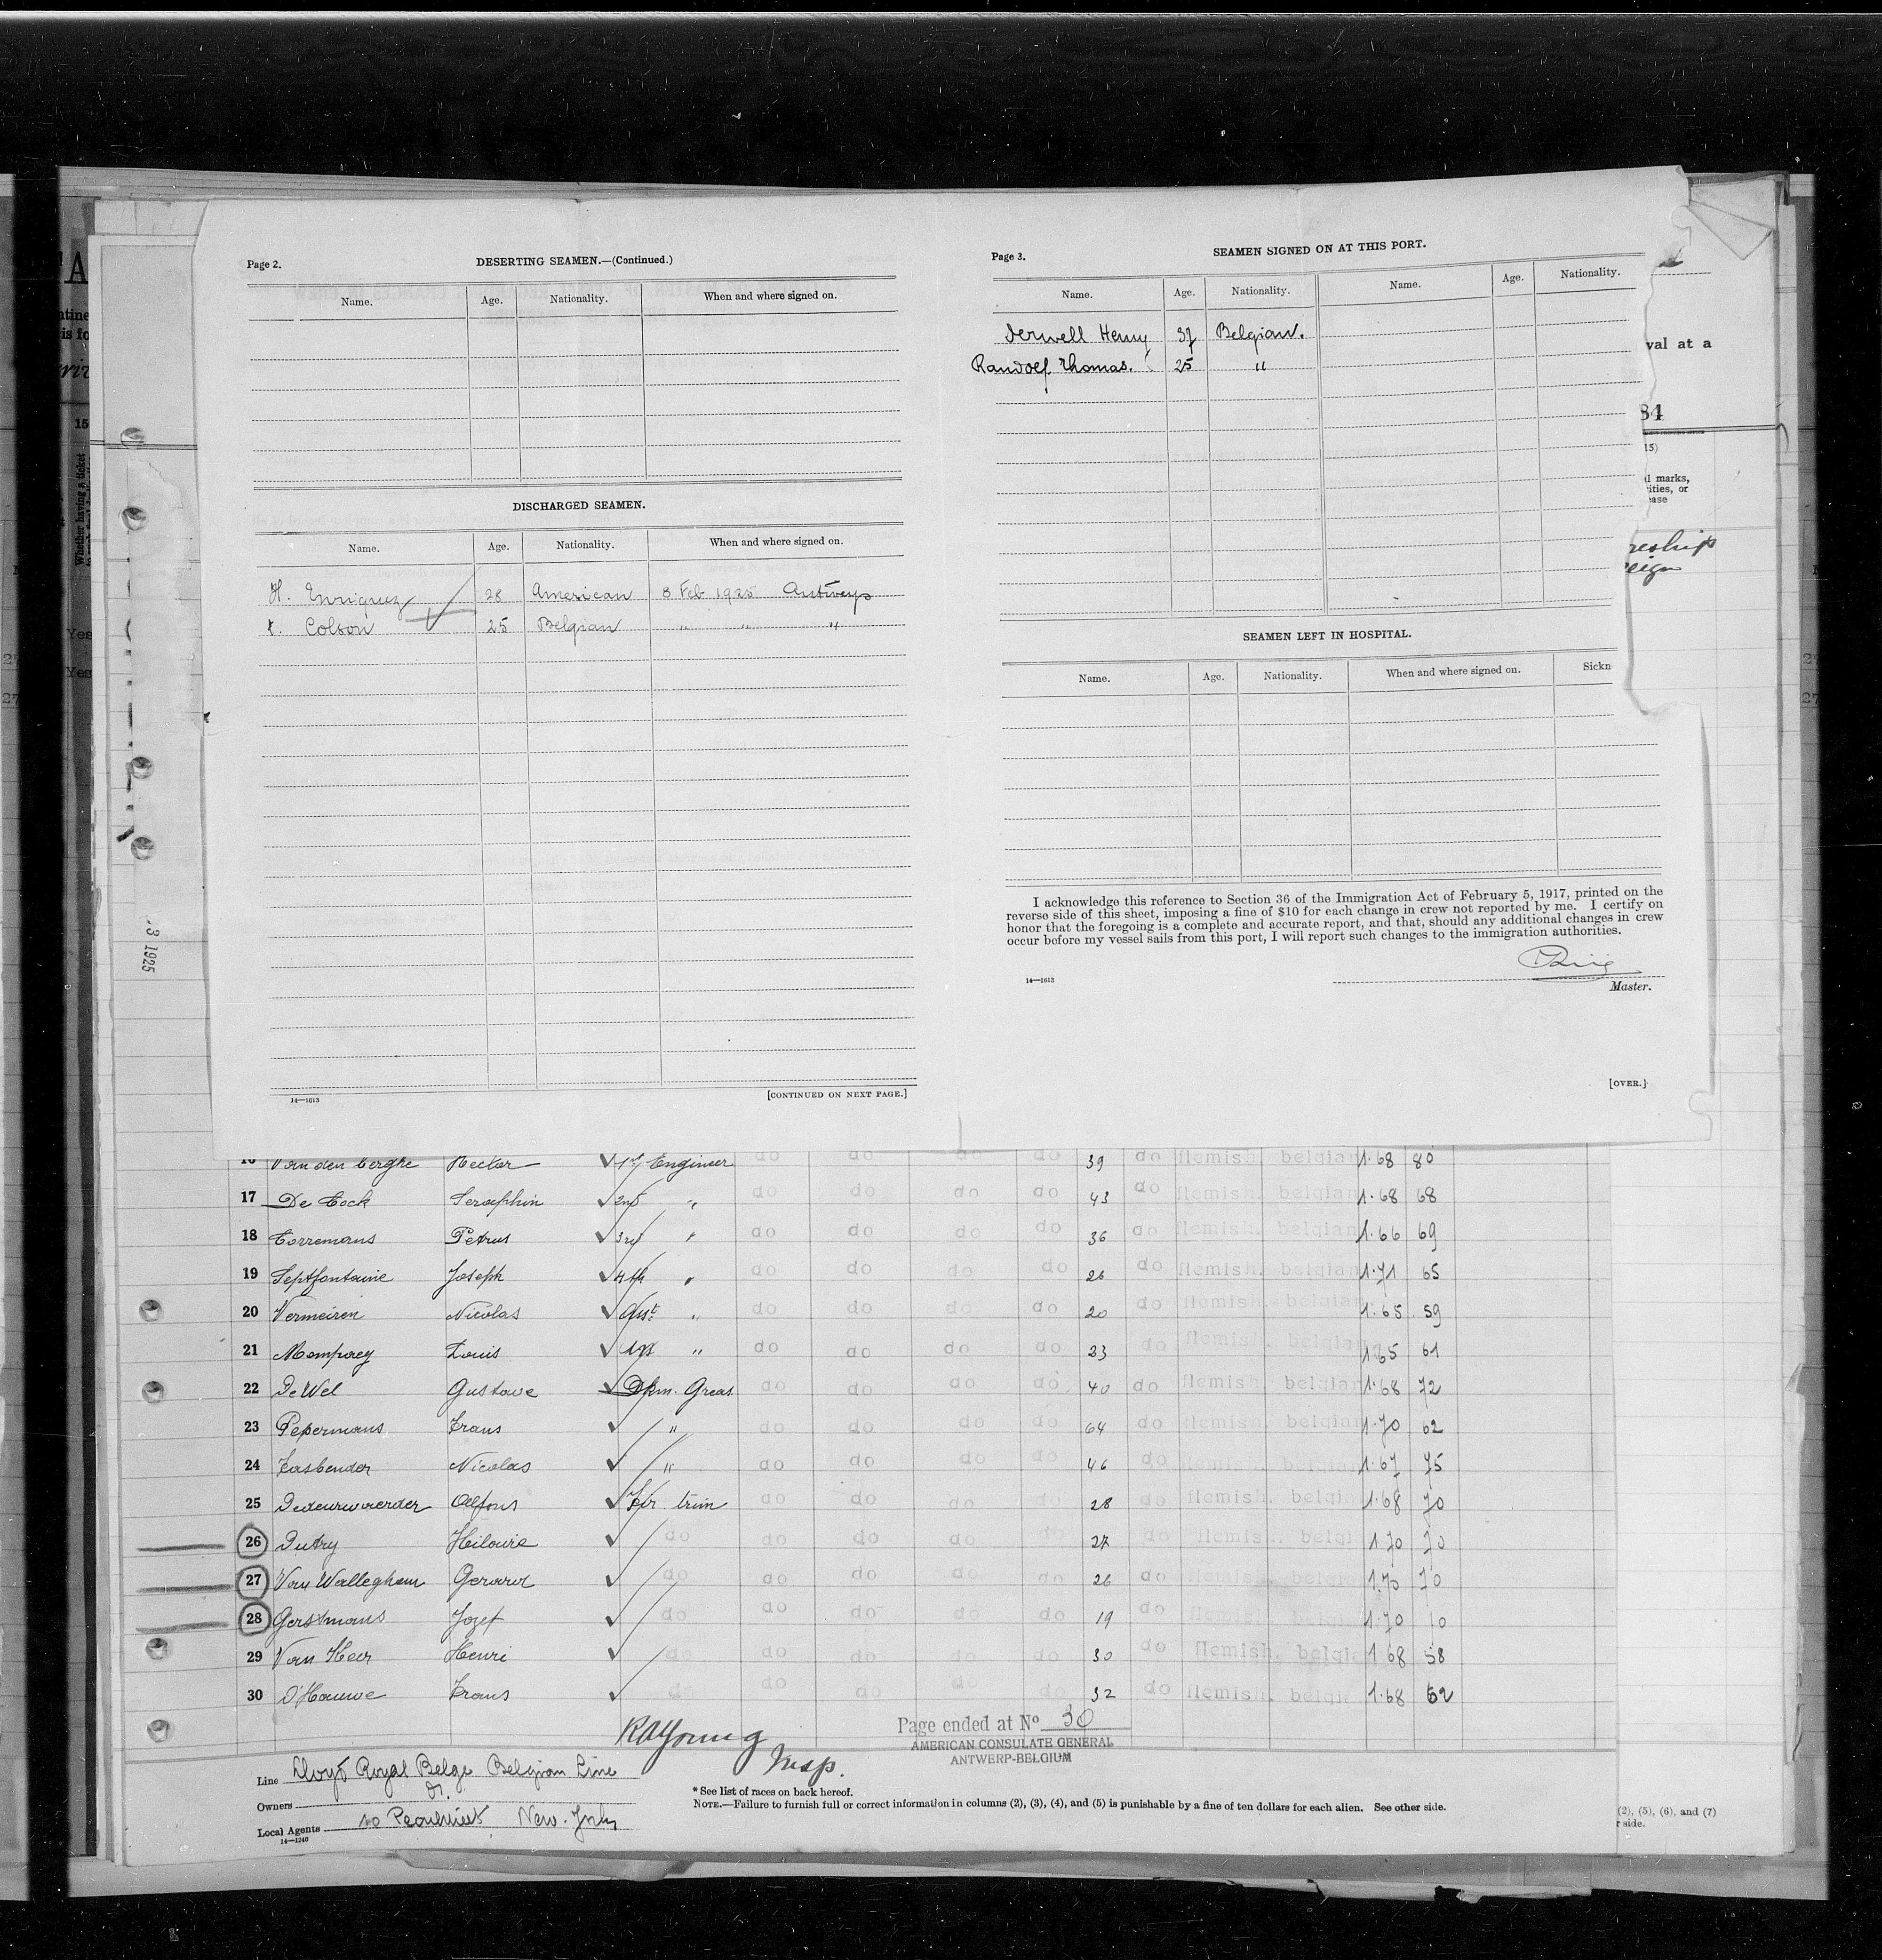 Page 2.
DESERTING SEAMEN.—(Continued.)
Name. Age. Nationality. When and where signed on.
DISCHARGED SEAMEN.
Name. Age. Nationality. When and where signed on.
H. Enriquez 28 American 8 Feb 1925 Antwerp
Colson 25 Belgian " " "
14—1613
[CONTINUED ON NEXT PAGE.]
Page 3.
SEAMEN SIGNED ON AT THIS PORT.
Name. Age. Nationality. Name. Age. Nationality.
Derwell Henry 37 Belgian.
Randolf Thomas. 25 "
SEAMEN LEFT IN HOSPITAL.
Name. Age. Nationality. When and where signed on. Sickn
I acknowledge this reference to Section 36 of the Immigration Act of February 5, 1917, printed on the
reverse side of this sheet, imposing a fine of $10 for each change in crew not reported by me. I certify on
honor that the foregoing is a complete and accurate report, and that, should any additional changes in crew
occur before my vessel sails from this port, I will report such changes to the immigration authorities.
14—1613
Master.
[OVER.]
val at a
84
15)
l marks,
ities, or
ease
reship
eign
3 1925
16 Van den berghe Hector 1st Engineer do do do do 39 do flemish. belgian 1.68 80
17 De Cock Seraphin 2nd " do do do do 43 do flemish. belgian 1.68 68
18 Corremans Petrus 3rd " do do do do 36 do flemish. belgian 1.66 69
19 Septfontaine Joseph 4th " do do do do 26 do flemish. belgian 1.71 65
20 Vermeiren Nicolas Ast. " do do do do 20 do flemish. belgian 1.65 59
21 Mompaey Louis " do do do do 23 do flemish. belgian 1.65 61
22 De Wel Gustave Dkm. Greas do do do do 40 do flemish. belgian 1.68 72
23 Pepermans Frans " do do do do 64 do flemish. belgian 1.70 62
24 Fasbender Nicolas " do do do do 46 do flemish. belgian 1.67 75
25 Dedeurwaerder Alfons Fir. trim do do do 28 do flemish. belgi 1.68 70
26 Dutry Hilaire do do do do do 27 do flemish. belgi 1.70 70
27 Van Walleghem Gerard do do do do do 26 do flemish. belgi 1.70 70
28 Gerstmans Jozef do do do do do 19 do flemish. 1.70
29 Van Heer Henri do do do do do 30 do flemish. belgia 1.68 58
30 D'Hauwe Frans do do do do do 32 do flemish. belgi 1.68 62
RA Young
Insp.
Page ended at No 30
AMERICAN CONSULATE GENERAL
ANTWERP-BELGIUM
Line Lloyd Royal Belge Belgian Line
Owners do.
Local Agents New-York
14—1240
* See list of races on back hereof.
NOTE.—Failure to furnish full or correct information in columns (2), (3), (4), and (5) is punishable by a fine of ten dollars for each alien. See other side.
(2), (5), (6), and (7)
r side.
15
Whether having a ticket
Yes
Yes
27
27